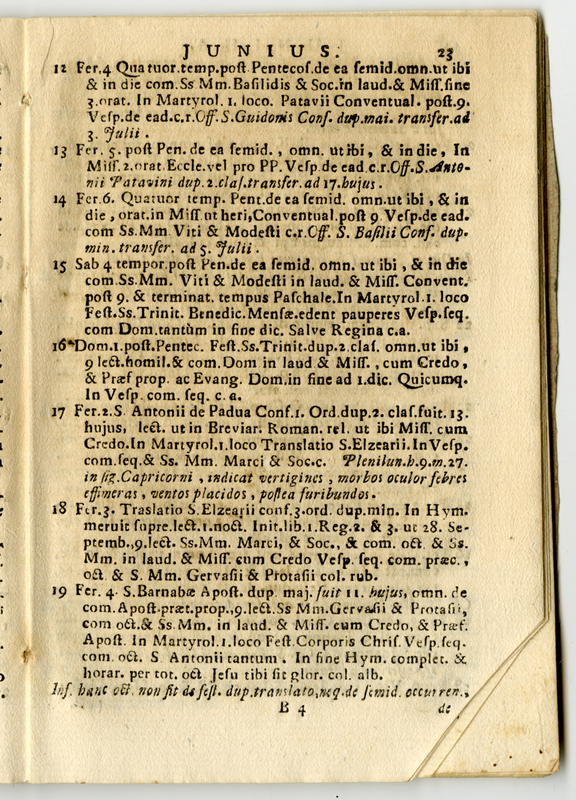 JUNIUS. 23
12 Fer.4 Quatuor.temp.post Pentecos.de ea semid.omn.ut ibi
& in die com.Ss Mm. Basilidis & Soc.in laud.& Miss.fine
3.orat. In Martyrol. 1. loco. Patavii Conventual. post.9.
Vesp.de ead.c.r.Off. S.Guidonis Conf. dup.mai. transfer.ad
3. Julii.
13 Fer. 5. post Pen. de ea semid., omn. ut ibi, & in die, In
Miss.2.orat.Eccle.vel pro PP. Vesp.de ead.c.r.Off.S.Anto-
nii Patavini dup.2.clas.transfer.ad 17.hujus.
14 Fer.6. Quatuor temp. Pent.de ea semid. omn.ut ibi, & in
die, orat.in Miss ut heri,Conventual.post 9 Vesp.de ead.
com Ss.Mm. Viti & Modesti c.r.Off. S. Basilii Conf. dup.
min. transfer. ad 5. Julii.
15 Sab 4 tempor.post Pen.de ea semid. omn. ut ibi, & in die
com.Ss.Mm. Viti & Modesti in laud. & Miss. Convent.
post 9. & terminat. tempus Paschale.In Martyrol.1. loco
Fest.Ss.Trinit. Benedic.Mensæ.edent pauperes Vesp.seq.
com Dom.tantùm in fine dic. Salve Regina c.a.
16*Dom.1.post.Pentec. Fest.Ss.Trinit.dup.2.clas. omn.ut ibi,
9 lect.homil.& com.Dom in laud & Miss., cum Credo,
& Præf prop. ac Evang. Dom.in fine ad 1.dic. Quicumq.
In Vesp. com. seq. c. a.
17 Fer.2.S. Antonii de Padua Conf.1. Ord.dup.2. clas.fuit.13.
hujus, lect. ut in Breviar. Roman. rel. ut ibi Miss. cum
Credo.In Martyrol.1.loco Translatio S.Elzearii.In Vesp.
com.seq.& Ss. Mm. Marci & Soc.c. Plenilun.h.9.m.27.
in sig.Capricorni, indicat vertigines, morbos oculor febres
effimeras, ventos placidos, postea furibundos.
18 Fer.3. Traslatio S.Elzearii conf.3.ord. dup.min. In Hym.
meruit supre.lect.1.noct. Init.lib.1.Reg.2. & 3. ut 28. Se-
ptemb.,9.lect. Ss.Mm. Marci, & Soc., & com. oct. & Ss.
Mm. in laud. & Miss. cum Credo Vesp. seq. com. præc.,
oct. & S. Mm. Gervasii & Protasii col. rub.
19 Fer. 4. S.Barnabæ Apost. dup. maj. fuit 11. hujus, omn. de
com.Apost.præt.prop.,9.lect.Ss Mm.Gervasii & Protasii,
com oct.& Ss.Mm. in laud. & Miss. cum Credo, & Præf.
Apost. In Martyrol.1.loco Fest.Corporis Chris.Vesp.seq.
com. oct. S. Antonii tantum. In fine Hym. complet. &
horar. per tot. oct. Jesu tibi sit glor. col. alb.
Inf. hanc oct. non fit de fest. dup.translato,neq.de semid. occurren.,
B 4 de